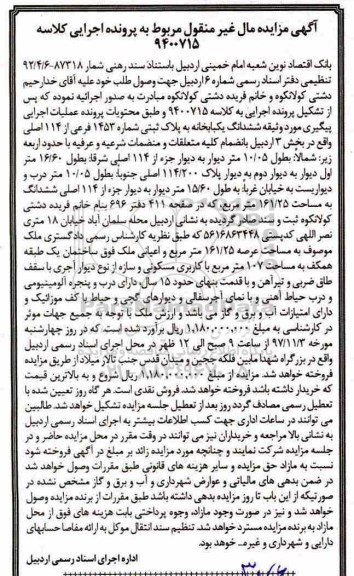 آگهی مزایده مال غیر منقول مربوط به پرونده اجرایی کلاسه
۹۴۰۰۷۱۵
بانک اقتصاد نوین شعبه امام خمینی اردبیل باستناد سند رهنی شمار ۸۷۳۱۸-۹۲/۴/۶
تنظیمی دفتر اسناد رسمی شماره ۶ اردبیل جهت وصول طلب خود علیه آقای خدارحیم
دشتی کولانکوه و خانم فریده دشتی کولانکوه مبادرت به صدور اجرائیه نموده که پس
از تشکیل پرونده اجرایی به کلاسه ۹۴۰۰۷۱۵ و طبق محتویات پرونده عملیات اجرایی
پیگیری مورد وثیقه ششدانگ یکبابخانه به پلاک ثبتی شماره ۱۴۵۳ فرعی از ۱۱۴ اصلی
واقع در بخش ۳ اردبیل بانضمام کلیه متعلقات و منضمات شرعیه و عرفیه با حدود اربعه
زیر: شمالا: بطول ۱۰/۰۵ متر دیوار به دیوار جزء از ۱۱۴ اصلی شرقا: بطول ۱۶/۶۰ متر
اول دیوار به دیوار دوم به دیوار پلاک ۱۱۴/۲۰۰ اصلی جنوبا: بطول ۱۰/۰۵ متر درب و
دیواریست به خیابان غربا: به طول ۱۵/۶۰ متر دیوار به دیوار جزء از ۱۱۴ اصلی ششدانگ
به مساحت ۱۶۱/۲۵ متر مربع که در صفحه ۴۱۱ دفتر ۶۹۶ بنام خانم فریده دشتی
کولانکوه ثبت و سند صادر گردیده به نشانی اردبیل محله سلمان آباد خیابان ۱۸ متری
نصر اللهی کدپستی ۵۶۱۶۸۶۳۴۴۸ که طبق نظریه کارشناس رسمی دادگستری ملک
موصوف به مساحت عرصه ۱۶۱/۲۵ متر مربع و اعیانی ملک فوق ساختمان یک طبقه
همکف به مساحت ۱۰۷ متر مربع با کاربری مسکونی و سازه از نوع دیوار آجری با سقف
طاق ضربی و تیرآهن و با قدمت بنهای حدود ۱۵ سال، دارای درب و پنجره آلومینیومی
و درب حیاط آهنی و با نمای آجرسفالی و دیوارهای گچی و حیاط با کف موزائیک و
دارای امتیازات آب و برق و گاز می باشد و ارزش ملک با توجه به جمیع جهات موثر
در کارشناسی به مبلغ ۱,۱۸۰,۰۰۰,۰۰۰ ریال برآورده شده است. که در روز چهارشنبه
مورخه ۹۷/۱۱/۳ از ساعت ۹ صبح الی ۱۲ ظهر در محل اجرای اسناد رسمی اردبیل
واقع در بزرگراه شهدا مابین فلکه ججین و میدان قدس جنب تالار میلاد از طریق مزایده
فروخته خواهد شد. مزایده از مبلغ ۱,۱۸۰,۰۰۰,۰۰۰ ریال شروع و به بالاترین قیمت
که خریدار داشته باشد فروخته خواهد شد. فروش نقدی است. هر گاه روز تعیین شده با
تعطیل رسمی مصادف گردد روز بعد از تعطیل جلسه مزایده تشکیل خواهد شد. طالبین
می توانند در ساعات اداری جهت کسب اطلاعات بیشتر به اجرای اسناد رسمی اردبیل
به نشانی بالا مراجعه و خریداران نیز می توانند در وقت مقرر در محل مزایده حاضر و در
جلسه مزایده شرکت نمایند و چنانچه مورد مزایده زائد بر مبلغ در آگهی فروخته شود
نسبت به مازاد حق مزایده و سایر هزینه های قانونی طبق مقررات وصول خواهد شد
در ضمن بدهی های مالیاتی و عوارض شهرداری و آب و برق و گاز مشخص نشده در
صورتیکه از این باب تا روز مزایده بدهی داشته باشد طبق مقررات از برنده مزایده وصول
خواهد شد و نیز در صورت وجود مازاد، وجوه پرداختی بابت هزینه های فوق از محل
مازاد به برنده مزایده مسترد خواهد شد. تنظیم سند انتقال موکول به ارائه مفاصا حسابهای
دارایی و شهرداری و غیره... خواهد بود.
اداره اجرای اسناد رسمی اردبیل